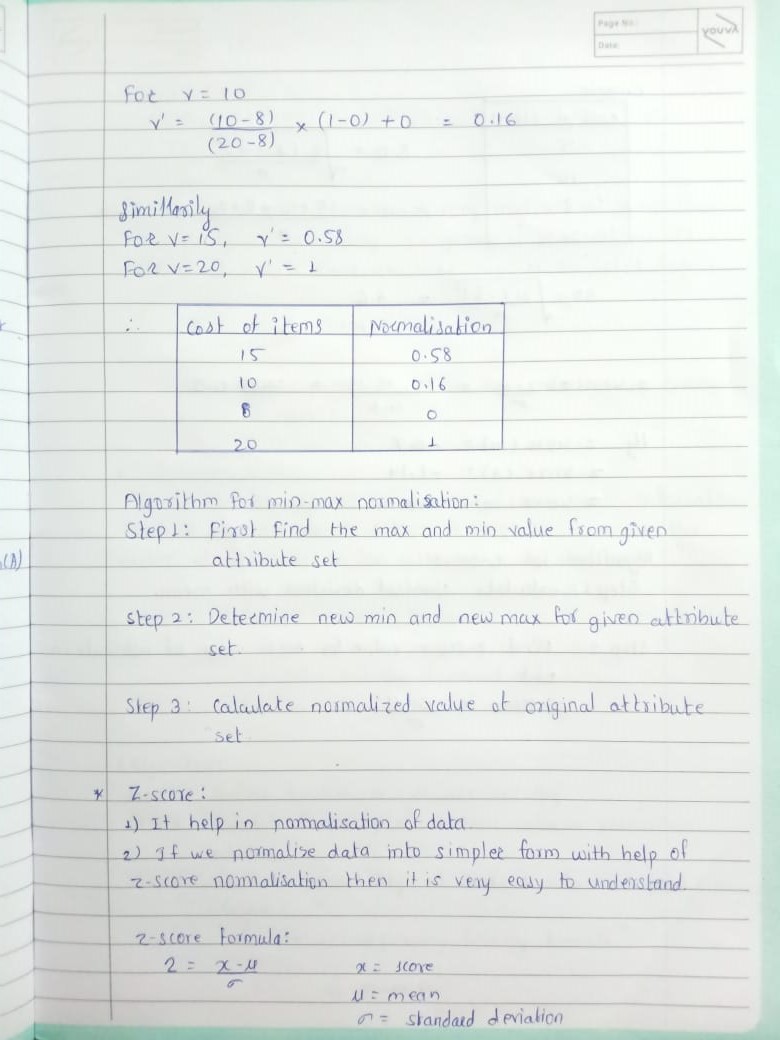 Page No.:
Date:
YOUVA
For v = 10
v' = (10-8) / (20-8) × (1-0) + 0 = 0.16
Simillarily
For v = 15, v' = 0.58
For v = 20, v' = 1
∴ Cost of items Normalisation
15 0.58
10 0.16
8 0
20 1
Algorithm for min-max normalisation:
Step 1: First find the max and min value from given
attribute set
Step 2: Determine new min and new max for given attribute
set.
Step 3: Calculate normalized value of original attribute
set
(A)
* Z-score:
1) It help in normalisation of data
2) If we normalize data into simpler form with help of
z-score normalisation then it is very easy to understand.
z-score formula:
Z = x-μ / σ x = score
μ = mean
σ = standard deviation